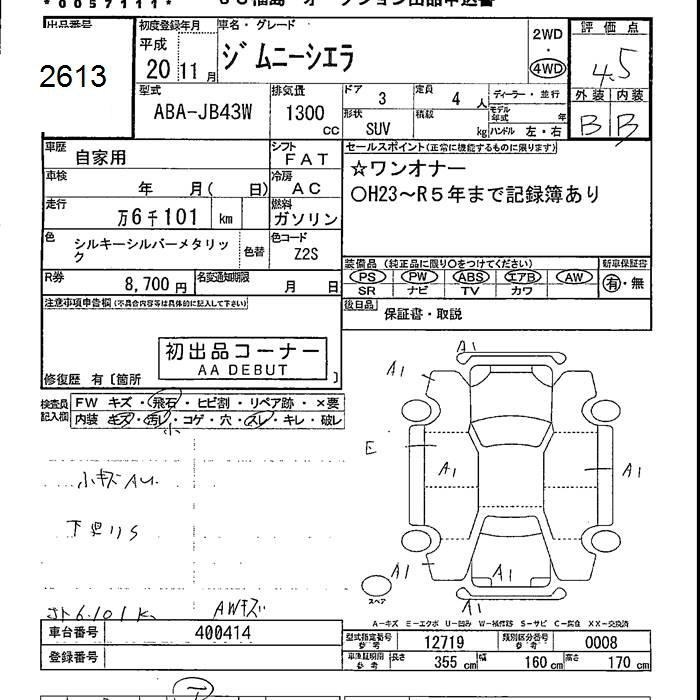 *0057111*
出品番号
2613
初度登録年月
平成
20 11 月
車名・グレード
ジムニーシエラ
2WD
・
4WD
評価点
4.5
外装 内装
B B
型式
ABA-JB43W
排気量
1300
cc
ドア
3
定員
4 人
形状
SUV
積載
kg
ディーラー・並行
モデル年式 年
ハンドル 左・右
車歴
自家用
シフト
FAT
車検
年 月( 日)
冷房
AC
走行
万6千101 km
燃料
ガソリン
色
シルキーシルバーメタリック
色替
色コード
Z2S
R券
8,700 円
名変通知期限
月 日
セールスポイント(正常に機能するものに限ります)
☆ワンオーナー
○H23～R5年まで記録簿あり
装備品(純正品に限り○をつけてください)
新車保証書
PS PW ABS エアB AW
有・無
SR ナビ TV カワ
後日品
保証書・取説
注意事項申告欄(不具合内容等は具体的に記入して下さい)
初出品コーナー
AA DEBUT
修復歴 有〔箇所 〕
検査員記入欄
FW キズ・飛石・ヒビ割・リペア跡・×要
内装 キズ・汚レ・コゲ・穴・スレ・キレ・破レ
小
小キズAU
下廻りS
6.101K
AWキズ
A1
A1
E
A1
A1
A1
A1
A1
A1
A1
スペア
A-キズ E-エクボ U-凹み W-補修跡 S-サビ C-腐食 XX-交換済
車台番号
400414
登録番号
型式指定番号
参考
12719
類別区分番号
参考
0008
車検証明用
参考
長さ 355 cm 幅 160 cm 高さ 170 cm